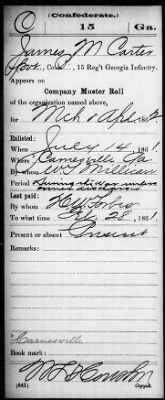 (Confederate.)
C 15 Ga.
James M. Carter
, Co. , 15 Reg't Georgia Infantry.
Appears on
Company Muster Roll
of the organization named above,
for Mch & Apl, 1862.
Enlisted:
When July 14, 1861.
Where Carnesville Ga
By whom W. T. Millican
Period
Last paid:
By whom
To what time Feb 28, 186
Present or absent Present
Remarks:
Carnesville
Book mark:
(642) Copyist.